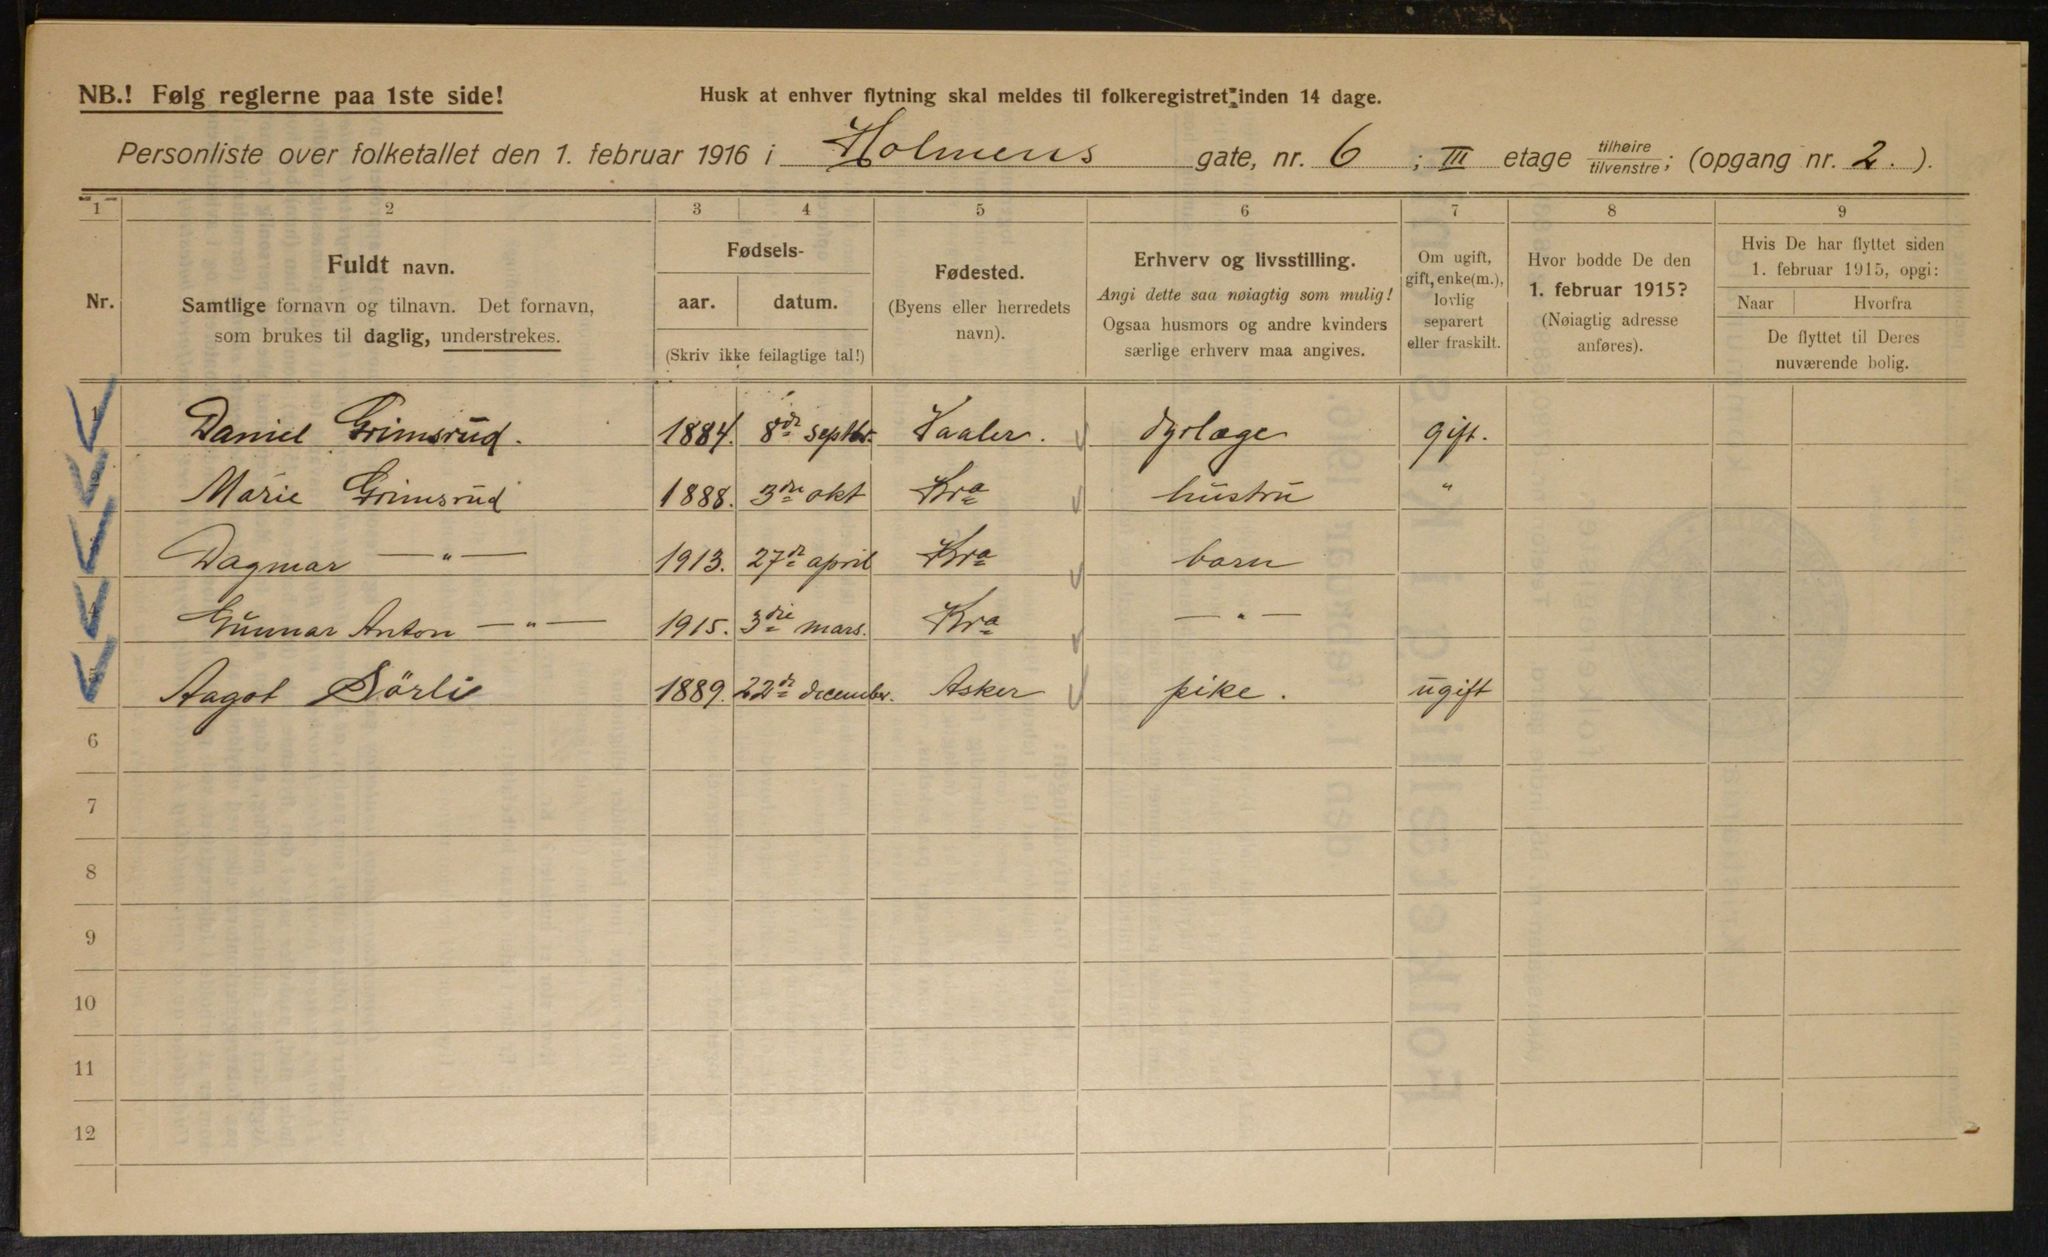 NB.! Følg reglerne paa 1ste side!
Husk at enhver flytning skal meldes til folkeregistret inden 14 dage.
Personliste over folketallet den 1. februar 1916 i Holmens gate, nr. 6 ; III etage tilhøire/tilvenstre; (opgang nr. 2. ).
1 2 3 4 5 6 7 8 9
Nr.
Fuldt navn.
Samtlige fornavn og tilnavn. Det fornavn,
som brukes til daglig, understrekes.
Fødsels-
aar. datum.
(Skriv ikke feilagtige tal!)
Fødested.
(Byens eller herredets
navn).
Erhverv og livsstilling.
Angi dette saa nøiagtig som mulig!
Ogsaa husmors og andre kvinders
særlige erhverv maa angives.
Om ugift,
gift, enke(m.),
lovlig
separert
eller fraskilt.
Hvor bodde De den
1. februar 1915?
(Nøiagtig adresse
anføres).
Hvis De har flyttet siden
1. februar 1915, opgi:
Naar Hvorfra
De flyttet til Deres
nuværende bolig.
1 Daniel Grimsrud. 1884. 8de septbr. Vaaler. dyrlæge gift.
Marie Grimsrud 1888. 3die okt Kra hustru "
Dagmar — " — 1913. 27de april Kra barn
Gunnar Anton — " — 1915. 3die mars. Kra — " —
Aagot Sörli 1889. 22de december. Asker pike. ugift
6
7
8
9
10
11
12